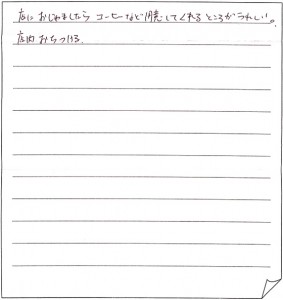 店におじゃましたら コーヒーなど用意してくれるところがうれしい。
店内おちつける。